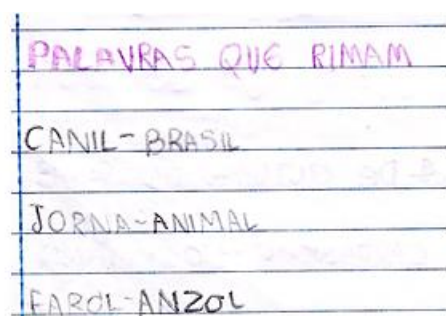 PALAVRAS QUE RIMAM
CANIL-BRASIL
JORNA-ANIMAL
FAROL-ANZOL